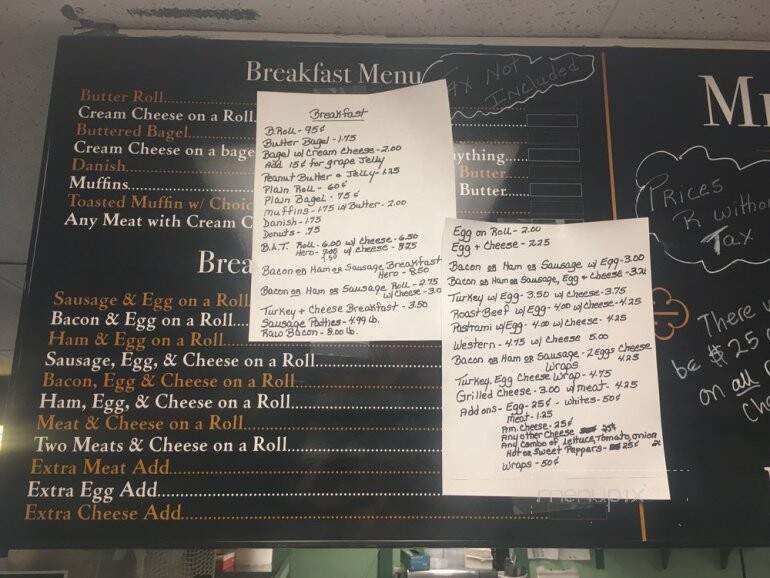 Breakfast Menu
Not Included
Butter Roll
Cream Cheese on a Roll
Buttered Bagel
Cream Cheese on a bage
Danish
Muffins
Toasted Muffin w/ Choic
Any Meat with Cream C
ything
Butter
Butter
Brea
Sausage & Egg on a Roll
Bacon & Egg on a Roll
Ham & Egg on a Roll
Sausage, Egg, & Cheese on a Roll
Bacon, Egg & Cheese on a Roll
Ham, Egg, & Cheese on a Roll
Meat & Cheese on a Roll
Two Meats & Cheese on a Roll
Extra Meat Add
Extra Egg Add
Extra Cheese Add
Breakfast
B.Roll - 95¢
Butter Bagel - 1.75
Bagel w/ Cream Cheese - 2.00
Add 15¢ for grape Jelly
Peanut Butter & Jelly - 1.25
Plain Roll - 60¢
Plain Bagel - 75¢
Muffins - 1.75 w/ Butter - 2.00
Danish - 1.75
Donuts - .75
B.L.T. Roll - 6.00 w/ cheese - 6.50
Hero - w/ cheese - 8.25
Bacon or Ham or Sausage Breakfast
Hero - 8.50
Bacon or Ham or Sausage Roll - 2.75
w/ Cheese - 3.0
Turkey + Cheese Breakfast - 3.50
Sausage Patties - 4.99 lb.
Raw Bacon - 8.00 lb.
Egg on Roll - 2.00
Egg + Cheese - 2.25
Bacon or Ham or Sausage w/ Egg - 3.00
Bacon or Ham or Sausage, Egg + Cheese - 3.2
Turkey w/ Egg - 3.50 w/ cheese - 3.75
Roast Beef w/ Egg - 4.00 w/ cheese - 4.25
Pastrami w/ Egg - 4.00 w/ cheese - 4.25
Western - 4.75 w/ Cheese 5.00
Bacon or Ham or Sausage - 2 Eggs Cheese
Wraps 4.25
Turkey, Egg Cheese Wrap - 4.75
Grilled Cheese - 3.00 w/ meat - 4.25
Add ons - Egg - 25¢ - whites - 50¢
Meat - 1.25
Am. Cheese - 25¢
Any other Cheese
Any Combo of Lettuce, Tomato, onion
Hot or Sweet Peppers - 25¢
Wraps - 50¢
menupix
Prices
R witho
Tax
There
be $25
on all
Ch